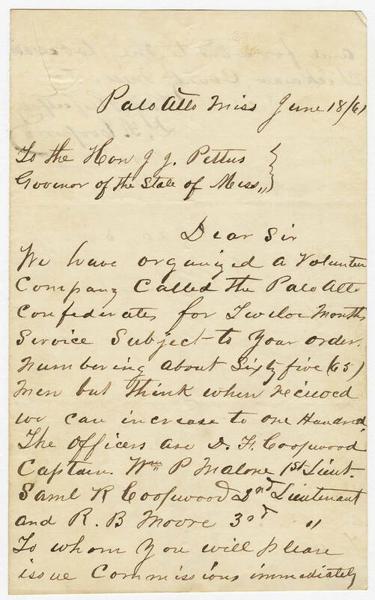 Palo Alto Miss June 18/61
To the Hon J. J. Pettus
Govenor of the State of Miss,,
Dear Sir
We have organized a Volunteer
Company Called the Palo Alto
Confederates for Twelve Months
Service Subject to Your order.
numbering about Sixty five (65)
Men but think when recieved
we can increase to one Hundred.
The officers are D. F. Coopwood
Captain. Wm P Malone 1st Lieut.
Saml R Coopwood 2nd Lieutenant
and R. B Moore 3rd "
To whom You will please
issue Commissions immediately